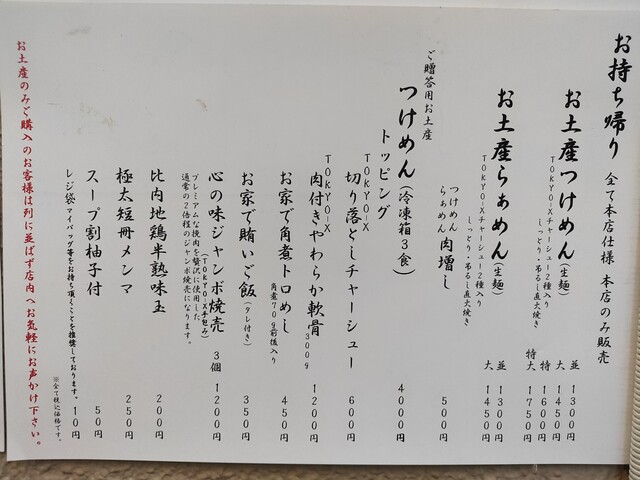 お持ち帰り 全て本店仕様 本店のみ販売
お土産つけめん(生麺) 並 1300円
TOKYO-Xチャーシュー2種入り 大 1450円
しっとり・吊るし直火焼き 特 1600円
特大 1750円
お土産らぁめん(生麺) 並 1300円
TOKYO-Xチャーシュー2種入り 大 1450円
しっとり・吊るし直火焼き
つけめん
らぁめん 肉増し 500円
ご贈答用お土産
つけめん(冷凍箱3食) 4000円
トッピング
TOKYO-X
切り落としチャーシュー 600円
TOKYO-X
肉付きやわらか軟骨 300g 1200円
お家で角煮トロめし 450円
角煮70g前後入り
お家で賄いご飯(タレ付き) 350円
心の味ジャンボ焼売 3個 1200円
(TOKYO-X手包み)
プレミアムな挽肉を贅沢に使用した
通常の2倍程のジャンボ焼売になります。
比内地鶏半熟味玉 200円
極太短冊メンマ 250円
スープ割柚子付 50円
レジ袋 マイバッグ等をお持ち頂くことを推奨しております。 10円
※全て税込価格です。
お土産のみご購入のお客様は列に並ばず店内へお気軽にお声かけ下さい。